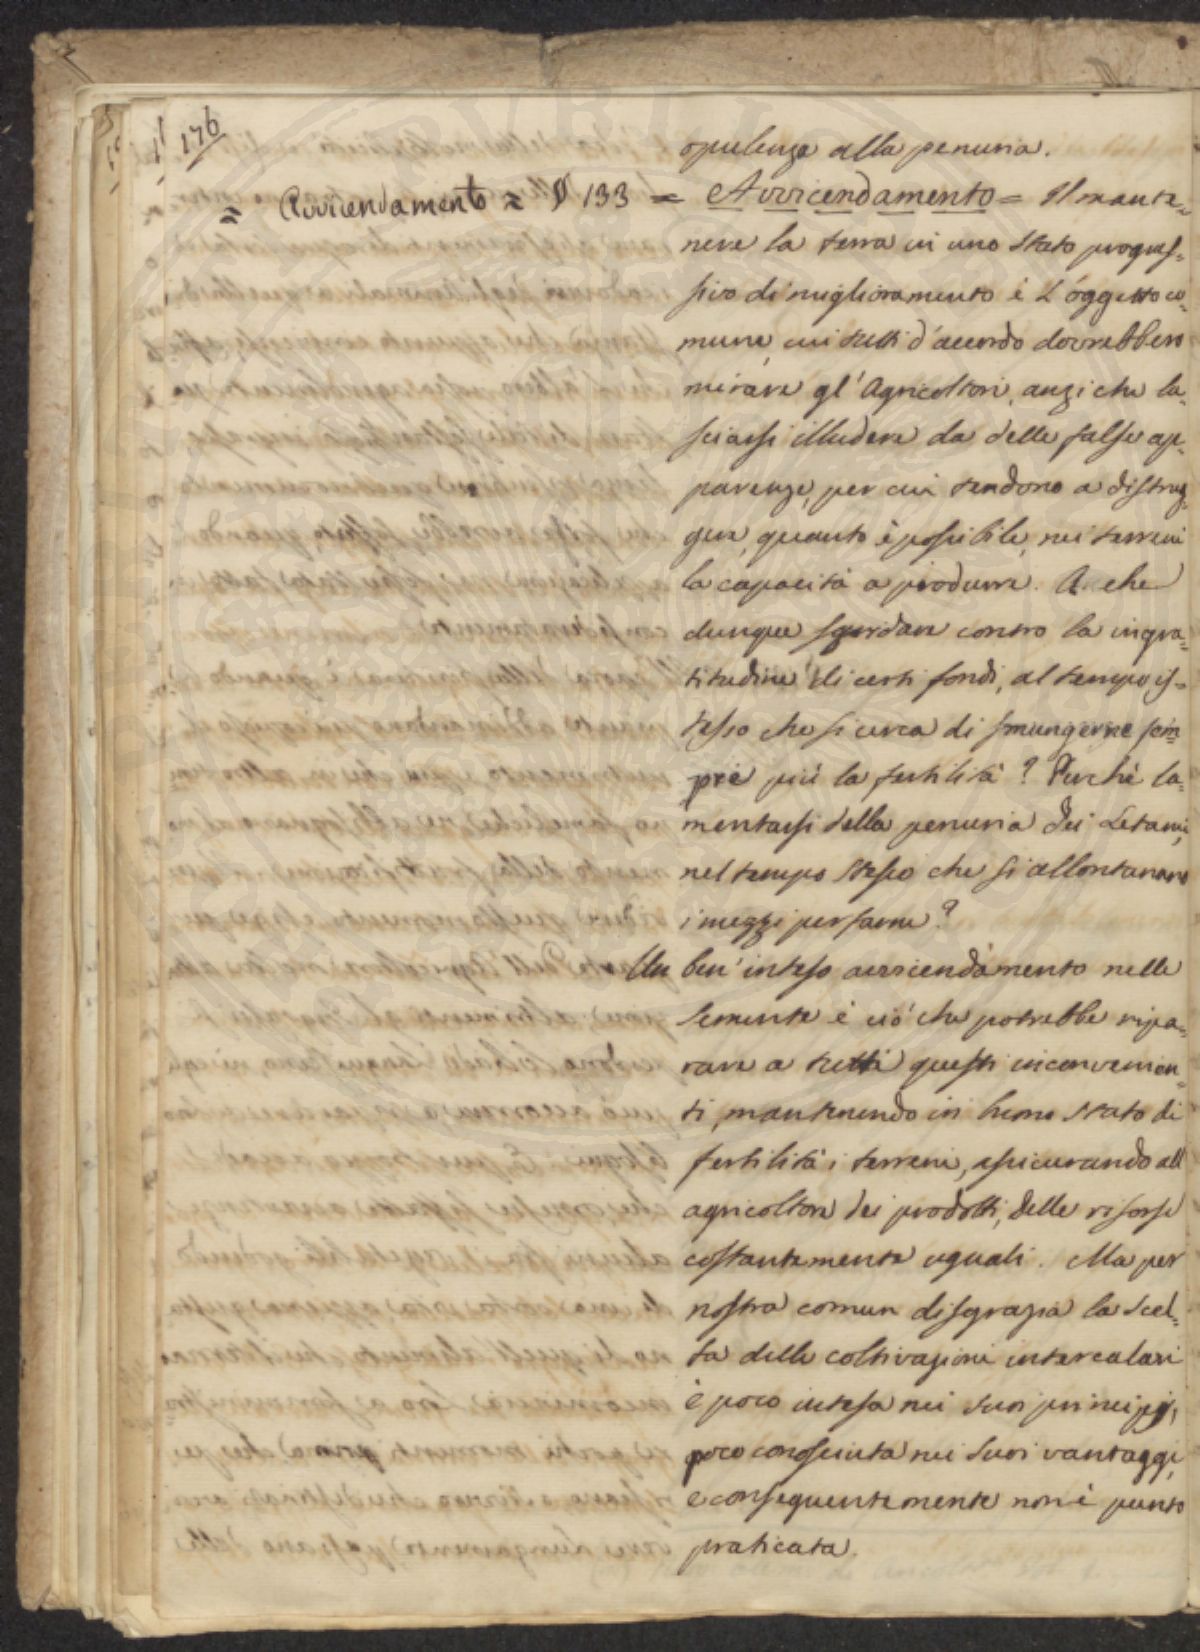 176
opulenza alla penuria.
= Avvicendamento = § 133 = Avvicendamento = Il mante-
nere la terra in uno stato progres-
sivo di miglioramento è l'oggetto co-
mune, cui tutti d'accordo dovrebbero
mirare gl'Agricoltori, anziche la-
sciarsi illudere da delle false ap-
parenze, per cui tendono a distrug-
gere, quanto è possibile, nei terreni
la capacità a produrre. A che
dunque sgridare contro la ingra-
titudine di certi fondi, al tempo is-
tesso che si cerca di smungerne sem-
pre più la fertilità? Perchè la-
mentarsi della penuria dei Letami,
nel tempo stesso che si allontanano
i mezzi per farne?
Un ben'inteso avvicendamento nelle
semente è ciò che potrebbe ripa-
rare a tutti questi inconvenien-
ti, mantenendo in buono stato di
fertilità i terreni, assicurando all
agricoltore dei prodotti, delle risorse
costantemente uguali. Ma per
nostra comun disgrazia la scel-
ta delle coltivazioni intercalari
è poco intesa nei suoi principj,
poco conosciuta nei suoi vantaggi,
e conseguentemente non è punto
praticata.